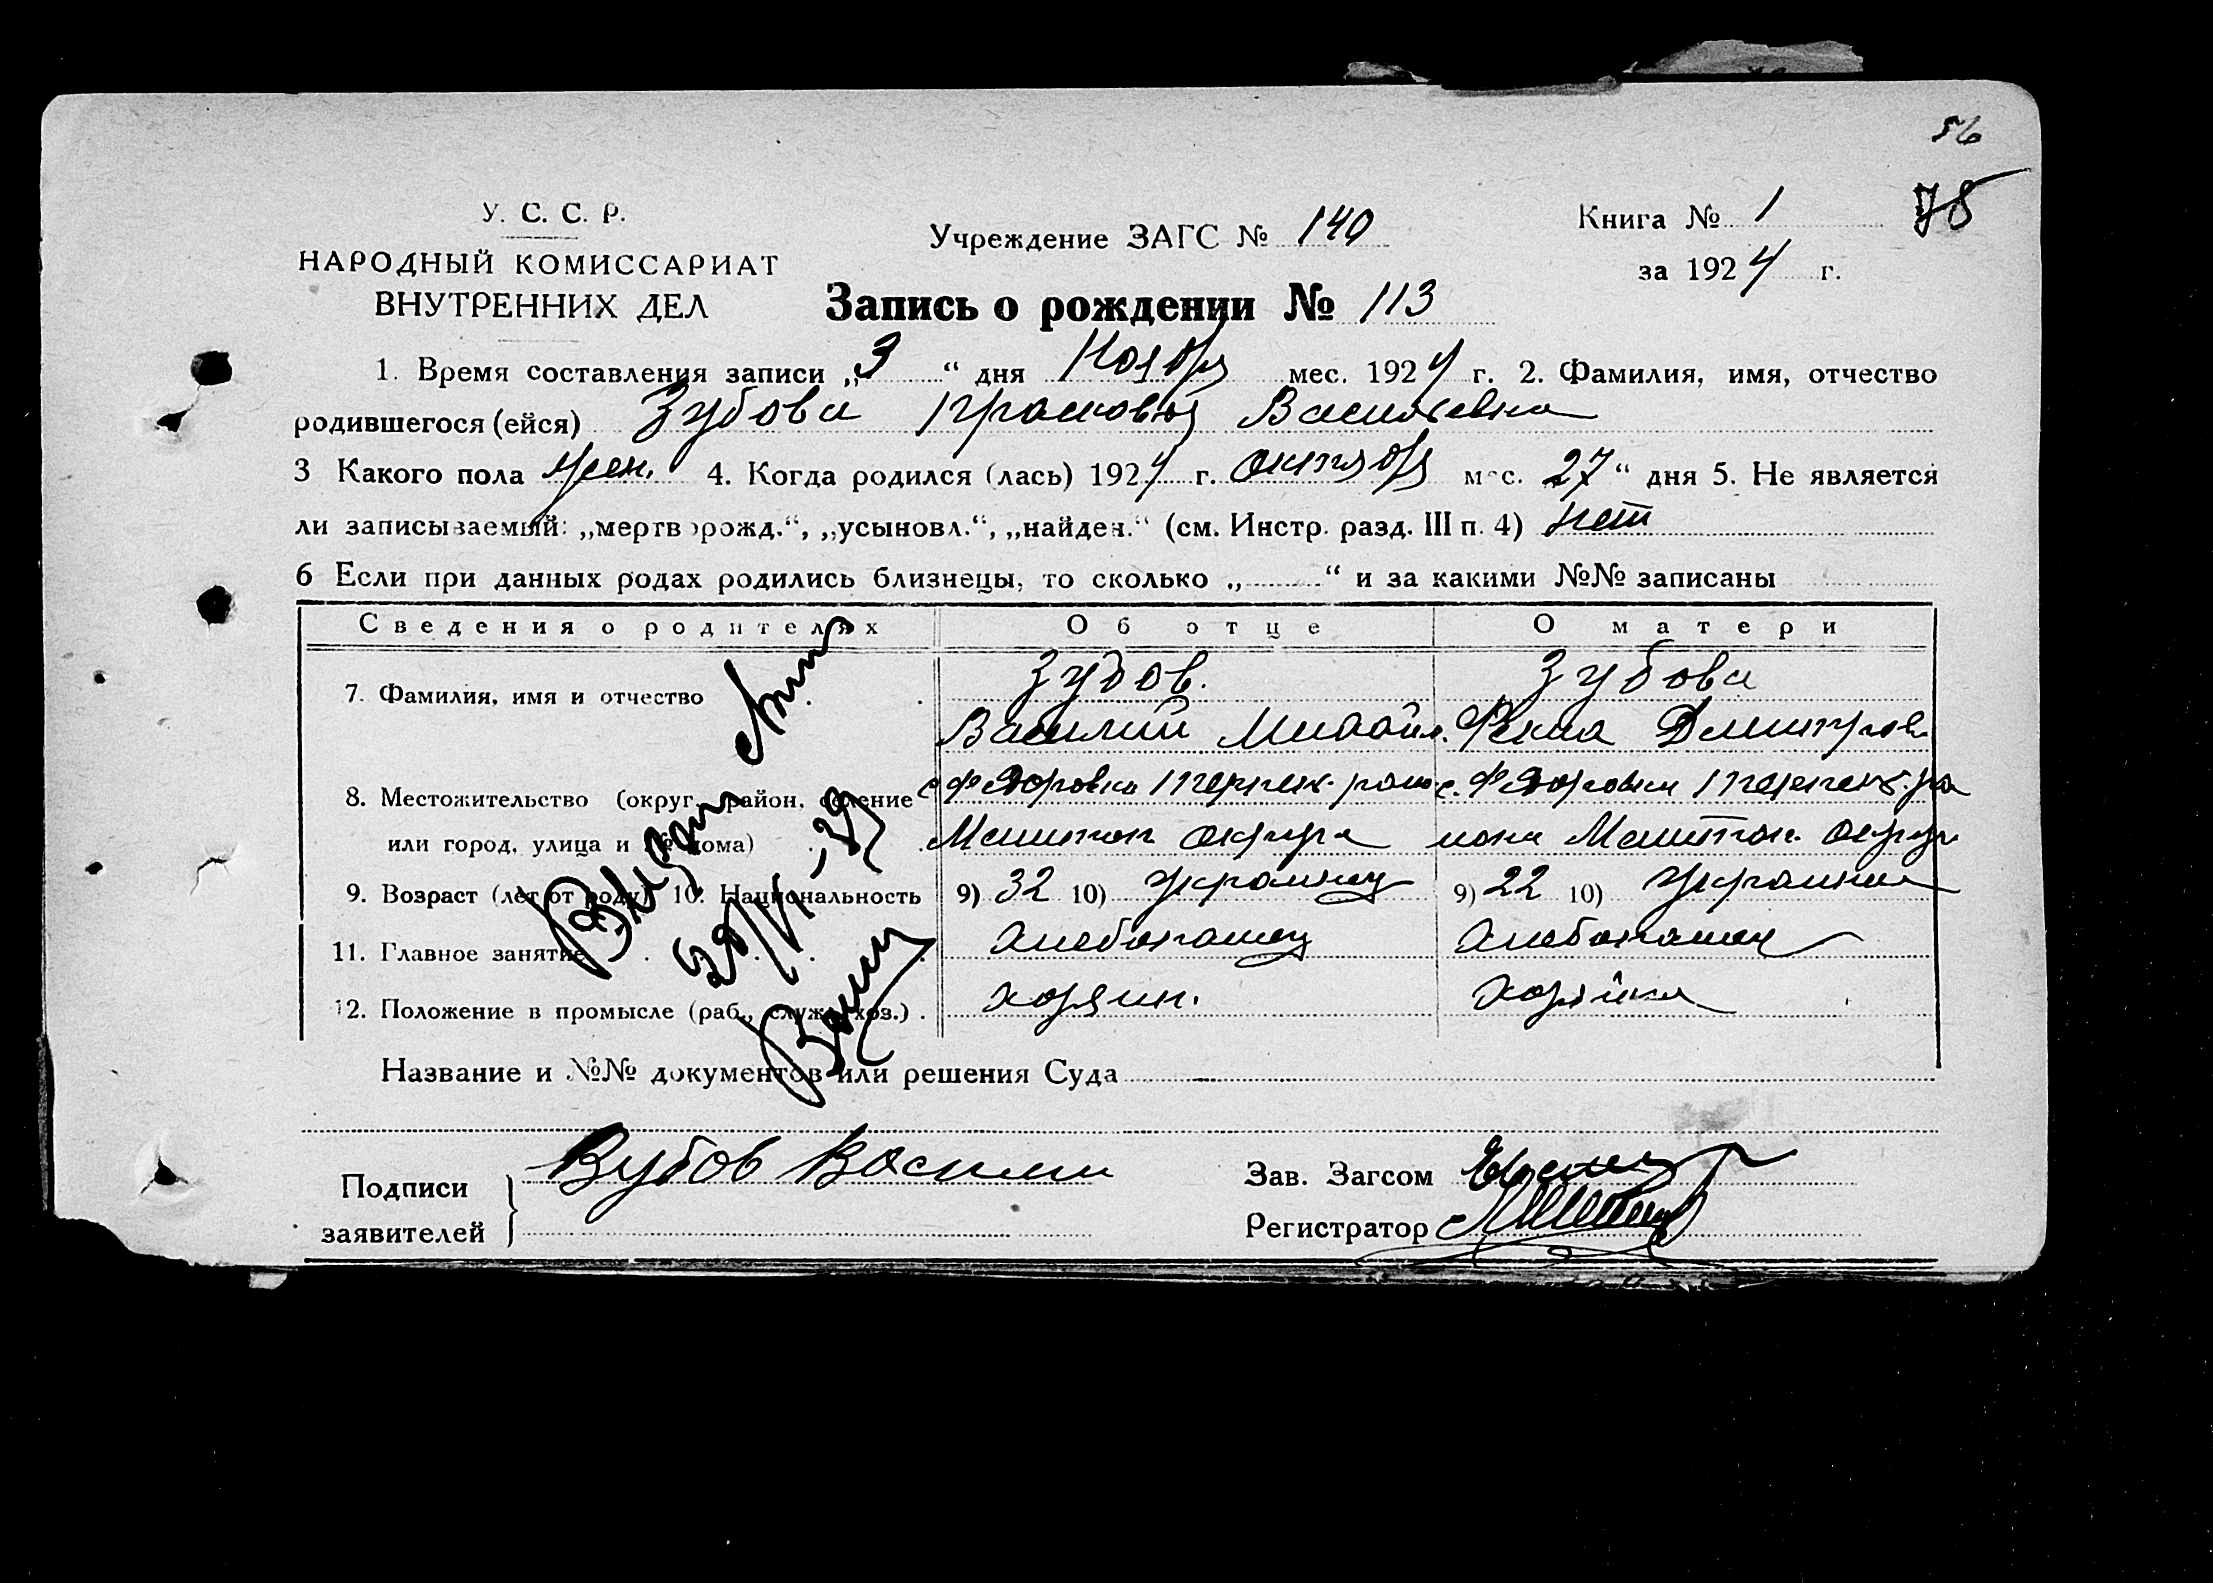 56
У. С. С. Р.
НАРОДНЫЙ КОМИССАРИАТ
ВНУТРЕННИХ ДЕЛ
Учреждение ЗАГС № 140
Книга № 1
78
за 1924 г.
Запись о рождении № 113
1. Время составления записи „3“ дня Ноября мес. 1924 г. 2. Фамилия, имя, отчество
родившегося (ейся) Зубова Прасковья Васильевна
3 Какого пола жен. 4. Когда родился (лась) 1924 г. октября мес. 27“ дня 5. Не является
ли записываемый: „мертворожд.“, „усыновл.“, „найден.“ (см. Инстр. разд. III п. 4) нет
6 Если при данных родах родились близнецы, то сколько „ “ и за какими №№ записаны
Сведения о родителях Об отце О матери
7. Фамилия, имя и отчество Зубов. Зубова
Василий Михайл. Фекла Дмитров.
8. Местожительство (округ, район, селение с. Федоровка с. Федоровка
или город, улица и № дома) Мелитоп округа Мелитоп. округ
9. Возраст (лет от роду) 10. Национальность 9) 32 10) Украинец 9) 22 10) Украинка
11. Главное занятие Хлебопашец Хлебопашец
12. Положение в промысле (раб., служ., хоз.) хозяин. хозяйка
Выдан
Название и №№ документов или решения Суда
Подписи
заявителей
Зубов Василий
Зав. Загсом
Регистратор